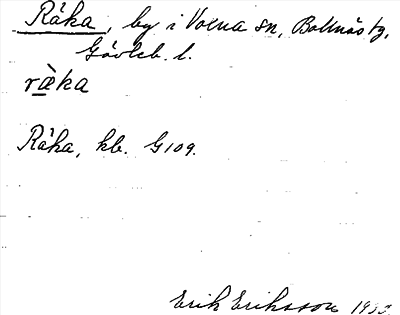 Råka, by i Voxna sn, Bollnäs tg,
Gävleb. l.
ræ̀ka
Råka, kb. G109.
Erik Eriksson